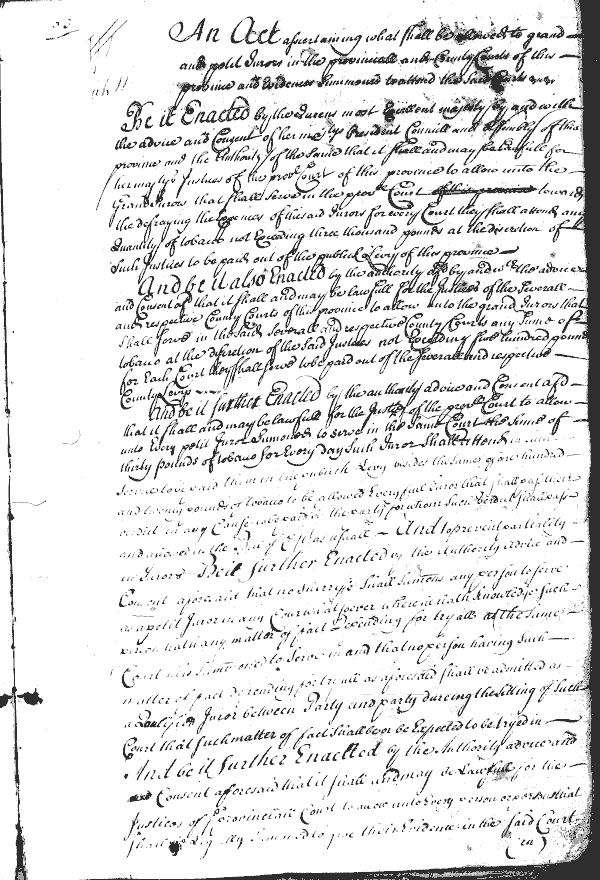 An Act ascertaining what shall be allowed to grand
and petit Jurors in the provinciall and County Courts of this
province and Evidences Summoned to attend the said Courts
Be it Enacted by the Queens most Excellent majesty by and with
the advice and Consent of her majtys President Councill and Assembly of this
province and the Authority of the Same that it shall and may be lawfull for
her majtys Justices of the provll Court of this province to allow unto the
Grand Jurors that shall serve in the provll Court of this province towards
the defraying the Expences of the said Jurors for every Court they shall attend any
Quantity of tobacco not Exceeding three thousand pounds at the discretion of
Such Justices to be paid out of the publick Levy of this province
And be it also Enacted by the authority afd by and with the advice
and Consent afd that it shall and may be lawfull for the Justices of the severall
and respective County Courts of this province to allow unto the grand Jurors that
shall serve in the said severall and respective County Courts any Sume of
tobacco at the discretion of the said Justices not Exceeding five hundred pounds
for Each Court they shall serve to be paid out of the severall and respective
County Levys
And be it further Enacted by the authority advice and Consent afd
that it shall and may be lawfull for the Justices of the provll Court to allow
unto Every petit Juror Summoned to serve in the same Court the Sume of
thirty pounds of tobacco for Every day Such Juror shall attend
to be paid them in the publick Levy besides the Sume of one hundred
and twenty pounds of tobacco to be allowed Every full Juror that shall pass their
verdict in any Cause to be paid by the party for whom such verdict shall pass
and allowed in the Bill of Costs as usuall And to prevent partiality
in Jurors Be it further Enacted by the Authority Advice and
Consent aforesaid that no Sherriffe shall Summons any person to serve
as a petit Juror in any Court whatsoever where he hath knowledge such
person hath any matter of fact depending for tryall at the same
Court he is Summoned to serve in and that no person having such
matter of fact depending for tryall as aforesaid shall be admitted as
a Quallified Juror between Party and party dureing the sitting of such
Court that such matter of fact shall be or be Expected to be tryed in
And be it further Enacted by the Authority advice and
Consent aforesaid that it shall and may be Lawfull for the
Justices of Provinciall Court to allow unto Every person or persons that
shall be Summoned to give their Evidence in the said Court
(en)